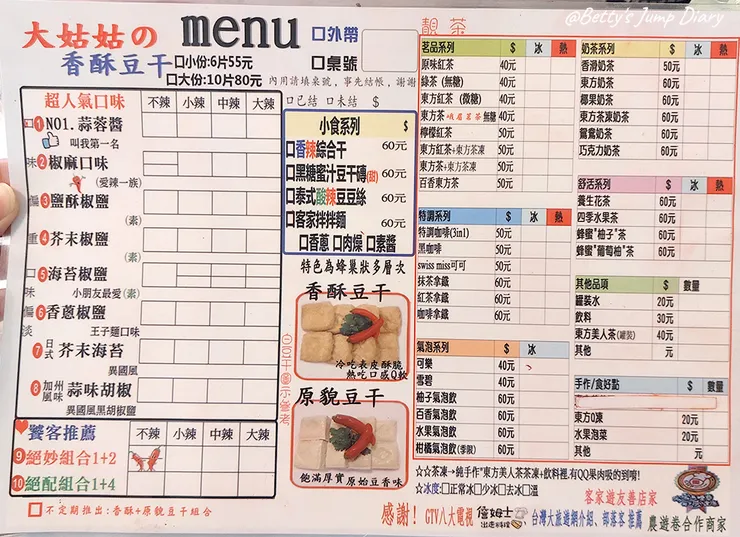 @Betty's Jump Diary
大姑姑の menu
香酥豆干
口小份:6片55元
口大份:10片80元
口外帶
口桌號
內用請填桌號,事先結帳,謝謝
口已結 口未結 $
超人氣口味 不辣 小辣 中辣 大辣
口味偏重 口味偏淡
1 NO1.蒜蓉醬
叫我第一名
2 椒麻口味
(愛辣一族)
3 鹽酥椒鹽
(素)
4 芥末椒鹽
(素)
5 海苔椒鹽
小朋友最愛(素)
6 香蔥椒鹽
王子麵口味
7 日式 芥末海苔
異國風
8 加州風味 蒜味胡椒
異國風黑胡椒鹽
饕客推薦 不辣 小辣 中辣 大辣
9 絕妙組合1+2
10 絕配組合1+4
口不定期推出:香酥+原貌豆干組合
小食系列 $
口香辣綜合干 60元
口黑糖蜜汁豆干磚(甜) 60元
口泰式酸辣豆豆絲 60元
口客家拌拌麵 60元
口香蔥 口肉燥 口素醬
特色為蜂巢狀多層次
香酥豆干
冷吃表皮酥脆
熱吃口感Q軟
原貌豆干
飽滿厚實 原始豆香味
靚茶
茗品系列 $ 冰 熱
原味紅茶 40元
綠茶(無糖) 40元
東方紅茶(微糖) 40元
東方茶 峨眉茗茶 無糖 40元
檸檬紅茶 50元
東方紅茶+東方茶凍 50元
東方茶+東方茶凍 50元
百香東方茶 50元
特調系列 $ 冰 熱
特調咖啡(3in1) 50元
黑咖啡 50元
swiss miss可可 50元
抹茶拿鐵 60元
紅茶拿鐵 60元
咖啡拿鐵 60元
氣泡系列 $ 冰
可樂 40元
雪碧 40元
柚子氣泡飲 60元
百香氣泡飲 60元
水果氣泡飲 60元
柑橘氣泡飲(季限) 60元
奶茶系列 $ 冰 熱
香滑奶茶 50元
東方奶茶 60元
椰果奶茶 60元
東方茶凍奶茶 60元
鴛鴦奶茶 60元
巧克力奶茶 60元
舒活系列 $ 冰 熱
養生花茶 60元
四季水果茶 60元
蜂蜜"柚子"茶 60元
蜂蜜"葡萄柚"茶 60元
其他品項 $ 數量
罐裝水 20元
飲料 30元
東方美人茶(罐裝) 40元
其他 元
手作/食好點 $ 數量
東方Q凍 20元
水果泡菜 20元
其他 元
☆☆茶凍→純手作"東方美人茶茶凍+飲料裡,有QQ果肉吸的到唷!
☆冰度:口正常冰口少冰口去冰口溫
客家遊友善店家
感謝! GTV八大電視 詹姆士 出走料理 、台灣大旅遊網介紹、部落客 推薦 農遊卷合作商家